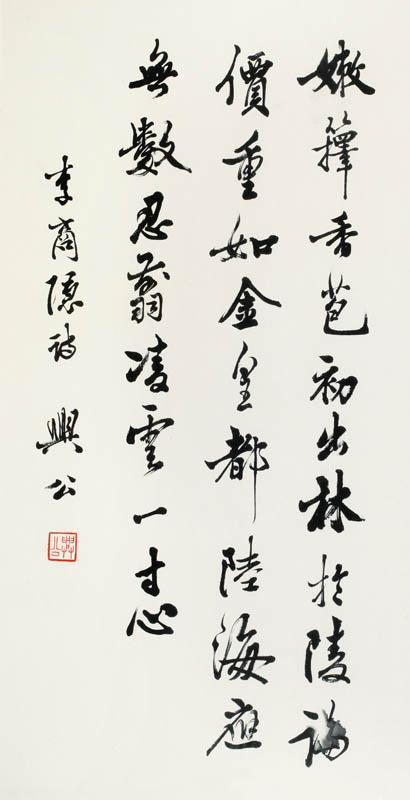 嫩籜香苞初出林於陵論
價重如金皇都陸海應
無數忍翦凌雲一寸心
李商隱詩 興公
興公